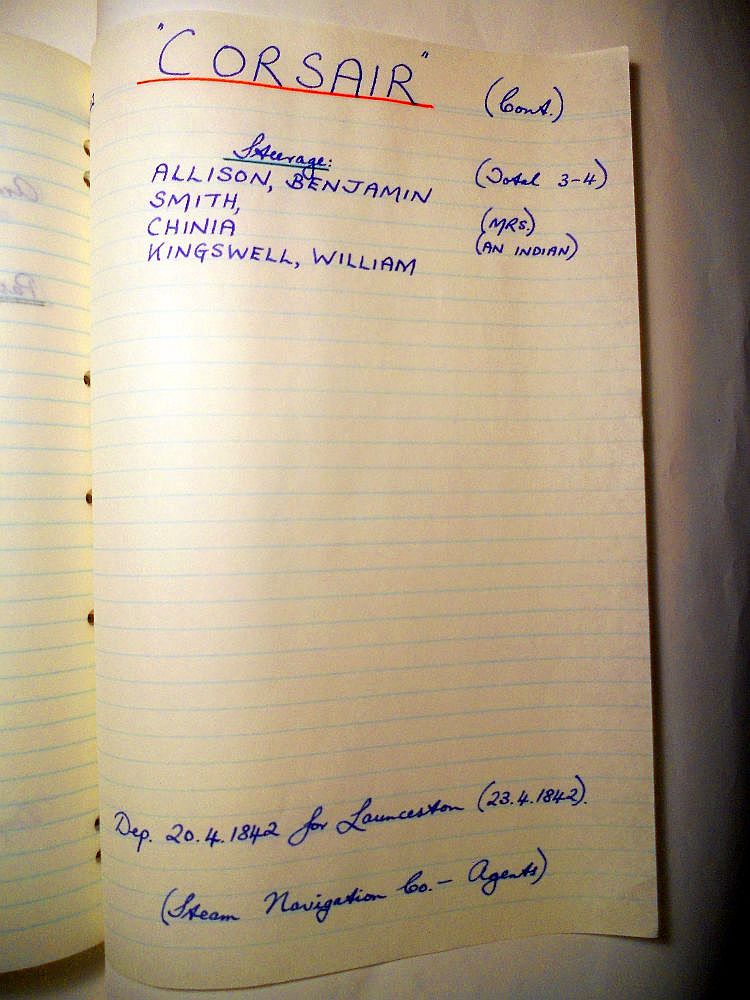 "CORSAIR" (Cont.)
Steerage:
ALLISON, BENJAMIN (Total 3-4)
SMITH, (MRS.)
CHINIA (AN INDIAN)
KINGSWELL, WILLIAM
Dep. 20.4.1842 for Launceston (23.4.1842).
(Steam Navigation Co. - Agents)